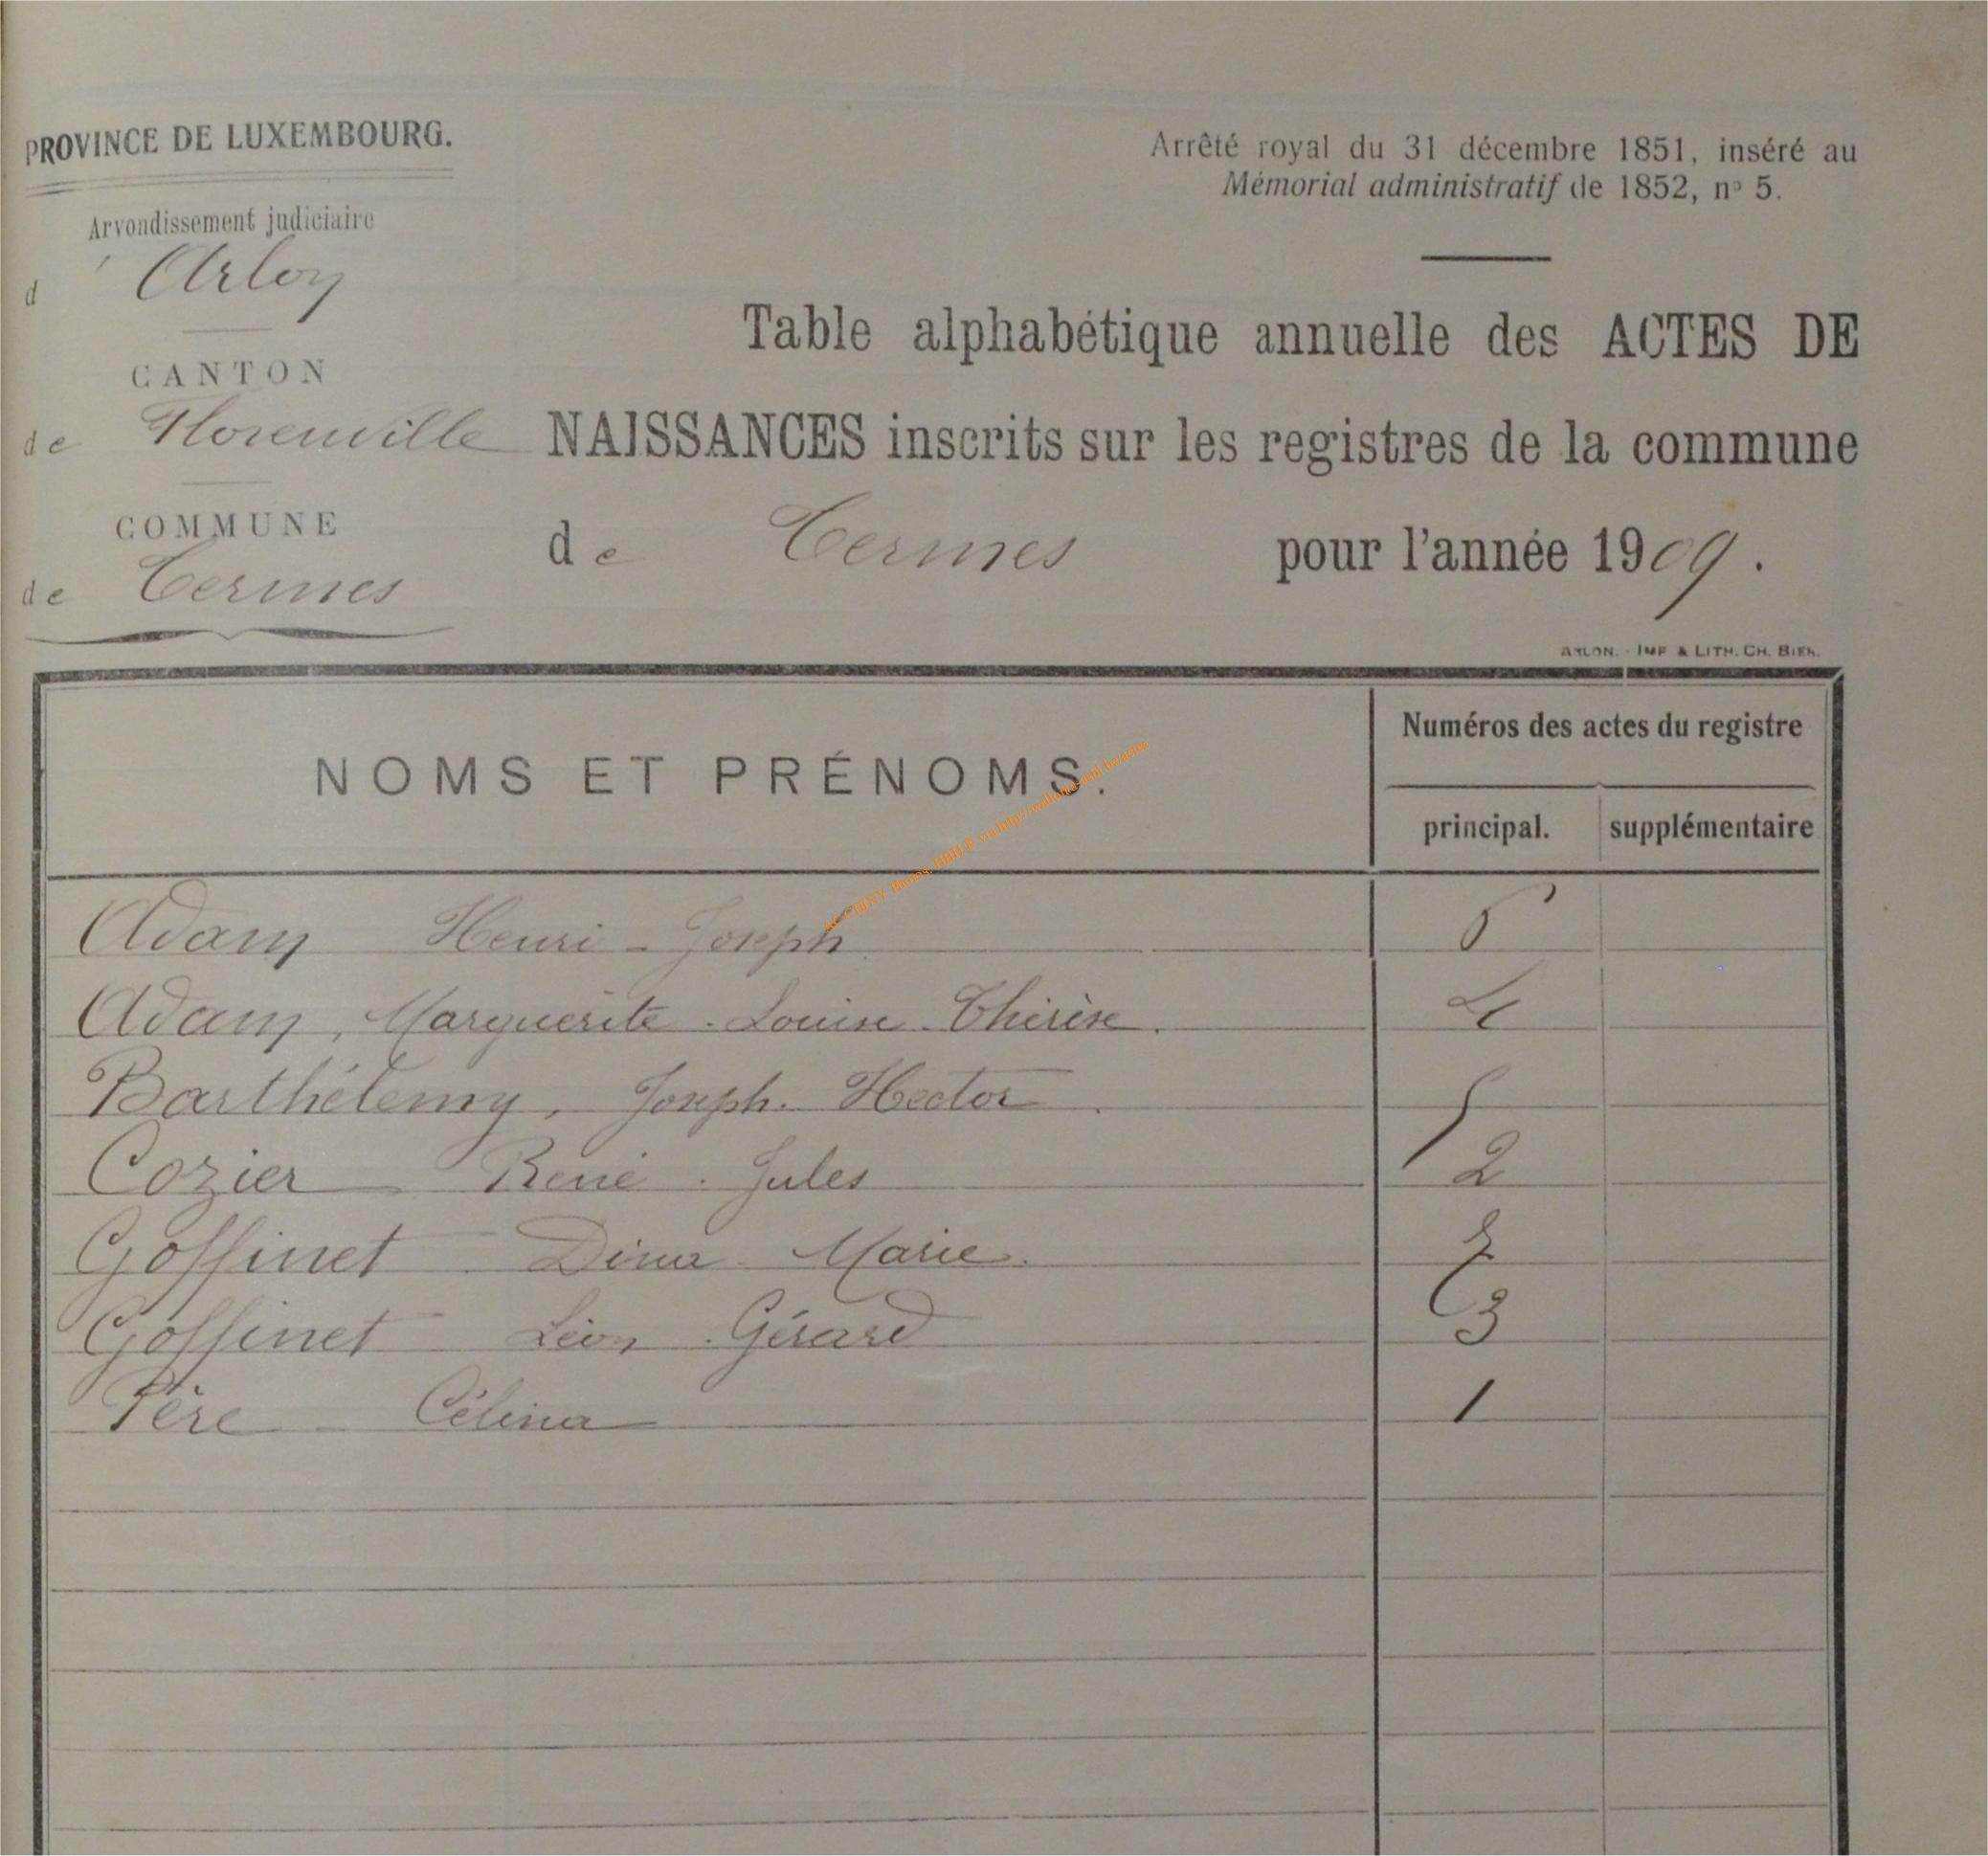 PROVINCE DE LUXEMBOURG.
Arrondissement judiciaire
d'Arlon
CANTON
de Florenville
COMMUNE
de Termes
Arrêté royal du 31 décembre 1851, inséré au
Mémorial administratif de 1852, nº 5.
Table alphabétique annuelle des ACTES DE
NAISSANCES inscrits sur les registres de la commune
de Termes pour l'année 1909.
ARLON. - IMP & LITH. CH. BIER.
NOMS ET PRÉNOMS.
Numéros des actes du registre
principal. supplémentaire
Adam Henri - Joseph 6
Adam, Marguerite - Louise - Thérèse. 4
Barthélemy, Joseph. Hector. 5
Cozier René. Jules 2
Goffinet Dina - Marie. 7
Goffinet Léon. Gérard 3
Père - Célina 1